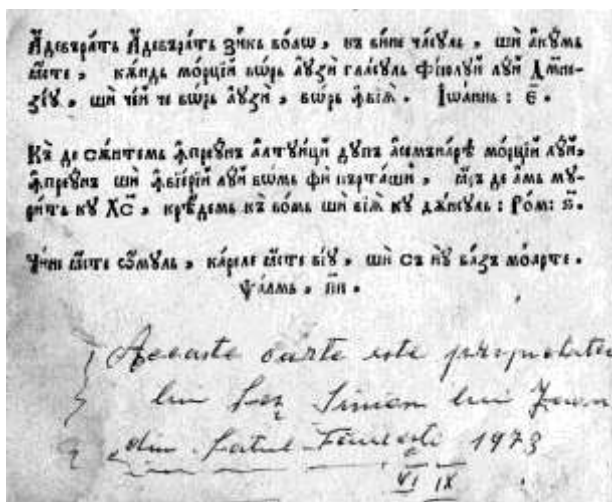 Адевърать Адевърать зикь воаѡ, къ вине часуль, ши акумь
ꙗсте, кѫндь морций ворь аузи гласуль фїюлуй луй Дм҃не-
зеу, ши чей че ворь аузи, ворь ꙟвїѧ. Іѡаннь: є҃.
Къ де сѫнтемь ꙟпреунъ алтуици дупъ асемънарѣ морций луй,
ꙟпреунъ ши ꙟвїерїй луй вомь фи пърташи, ꙗръ де амь му-
рить ку Хс҃, крѣдемь къ вомь ши вїѧ ку дѫнсуль: Ром: ѕ҃.
Чине ꙗсте ѡмуль, кареле ꙗсте вїу, ши съ ну вазъ моарте.
Ѱалмь, пи҃.
Aceasta carte este proprietatea
lui Simion lui Ioan
din Satul 1973
VI IX